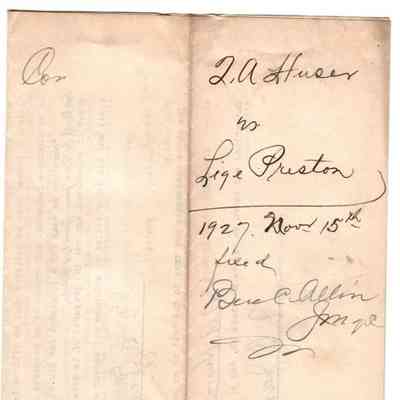 Con
T. A Huser
vs
Lige Preston
1927. Nov 15th
filed
Ben C. Allin